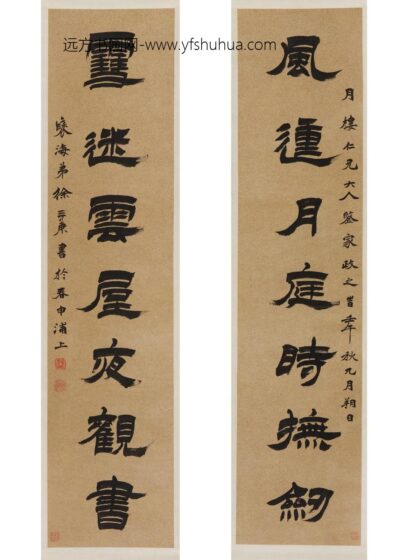 远方书画网-www.yfshuhua.com
風月庭時撫劍
月樓仁兄大人鑒家政之 旹壬午秋九月朔日
雪迷雲屋夜觀書
褎海弟徐三庚書於春申浦上